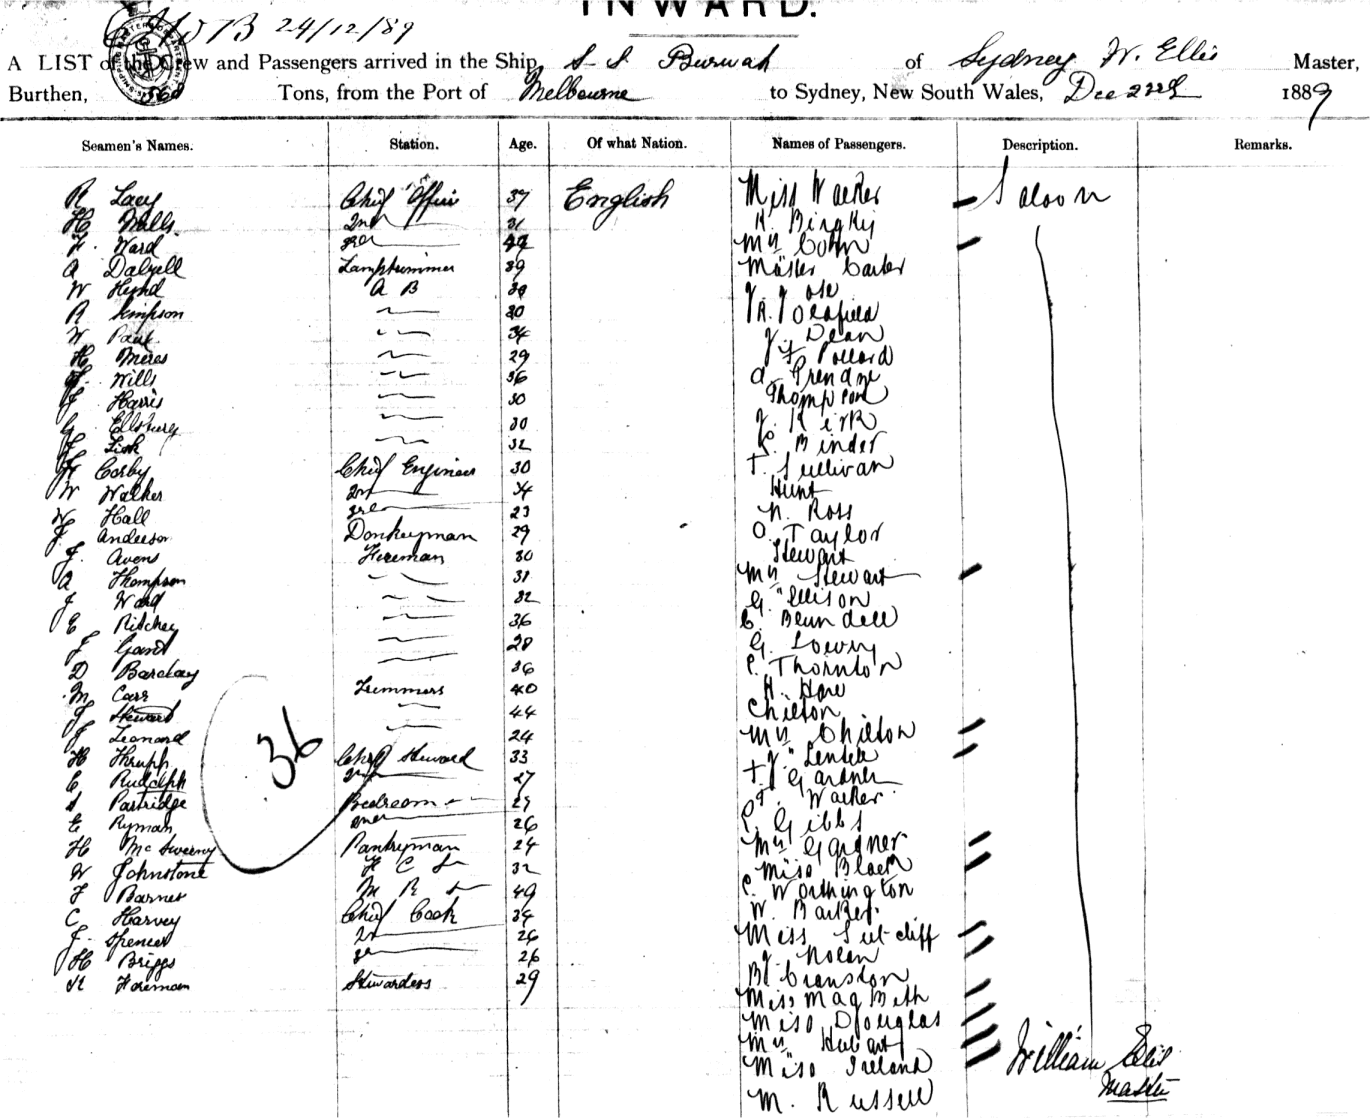 INWARD.
24/12/89
A LIST of the Crew and Passengers arrived in the Ship, S. S. Burwah of Sydney W. Ellis Master,
Burthen, Tons, from the Port of Melbourne to Sydney, New South Wales, Dec 22nd 1889
Seamen's Names. Station. Age. Of what Nation. Names of Passengers. Description. Remarks.
R Lacy Chief Officer 37 English Miss Walker Saloon
H Wells 2nd 31
Ward 3rd Mrs Cohn
A Dalzell Lamptrimmer 39 Master Carter
W Hynd A B
R Simpson 30 Oldfield
W Paul 34 J. Dean
H Meres 29 Pollard
Wills 36
Harris 30 Thompson
G Ellsbury 30 J. Kirk
Lish 32 Binder
Corby Chief Engineer 30 T. Sullivan
W Walker 2nd 34 Hunt
W Hall 3rd 23 N. Ross
J. Anderson Donkeyman 29 O. Taylor
J. Avens Fireman 30 Stewart
A Thompson 31 Mrs Stewart
J Ward 32 G. Ellison
E Ritchey 36 Blundell
J Gant 28 G. Lowry
D Barclay 36 C. Thornton
M Carr Trimmers 40 H. Hore
J Steward 44 Chilton
J Leonard 24 Mrs Chilton
H Thrupp Chief Steward 33
E Rudolph 2nd 27 Gardner
S Partridge Bedroom 29 Walker
E Ryman 26 Gibbs
H McSweeny Pantryman 24 Mrs Gardner
W Johnstone F C S 32 Miss Black
F Barnes M R S 49 C. Worthington
C Harvey Chief Cook 34 W. Barker
J. Spencer 2nd 26 Miss Sutcliff
H Briggs 3rd 26 J. Nolan
Foreman Stewardess 29 Cranston
36
Miss MagBeth
Miss Douglas
Mrs Hubart
Miss Ireland
M. Russell
William Ellis
Master